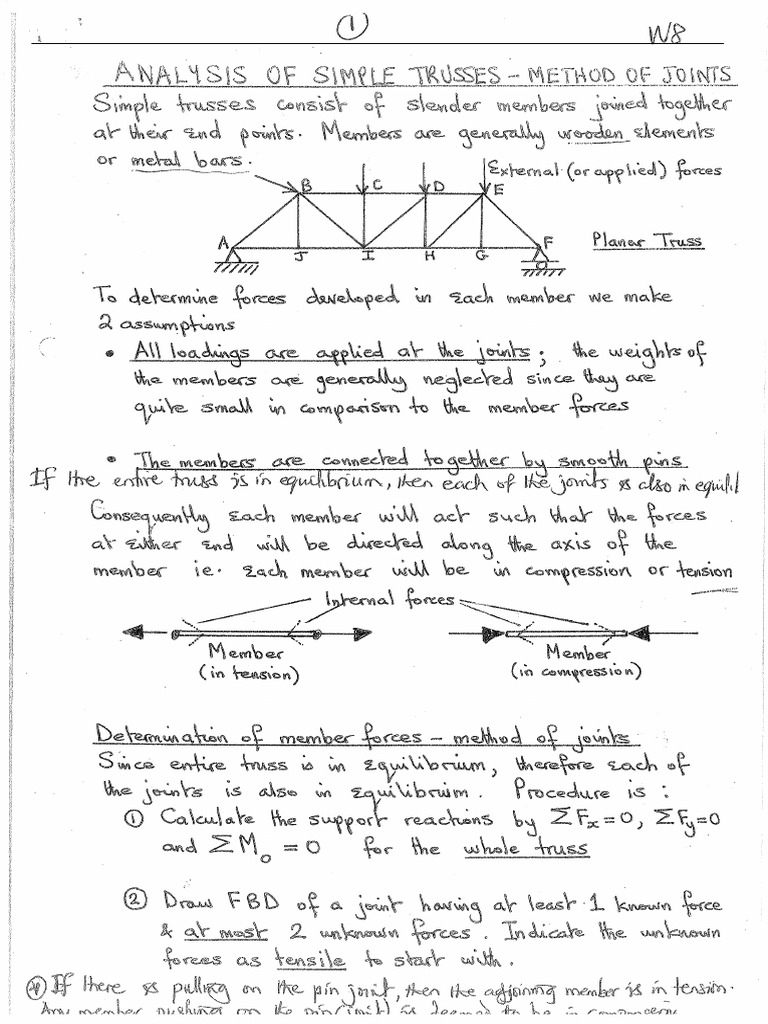 ①
W8
ANALYSIS OF SIMPLE TRUSSES – METHOD OF JOINTS
Simple trusses consist of slender members joined together
at their end points. Members are generally wooden elements
or metal bars.
External (or applied) forces
B C D E
A J I H G F
Planar Truss
To determine forces developed in each member we make
2 assumptions
• All loadings are applied at the joints; the weights of
the members are generally neglected since they are
quite small in comparison to the member forces
• The members are connected together by smooth pins
If the entire truss is in equilibrium, then each of the joints is also in equil
Consequently each member will act such that the forces
at either end will be directed along the axis of the
member ie. each member will be in compression or tension
Internal forces
Member
(in tension)
Member
(in compression)
Determination of member forces – method of joints
Since entire truss is in equilibrium, therefore each of
the joints is also in equilibrium. Procedure is :
① Calculate the support reactions by ΣFx=0, ΣFy=0
and ΣMo = 0 for the whole truss
② Draw FBD of a joint having at least 1 known force
& at most 2 unknown forces. Indicate the unknown
forces as tensile to start with.
If there is pulling on the pin joint, then the adjoining member is in tension.
Any member pushing on the pin (joint) is deemed to be in